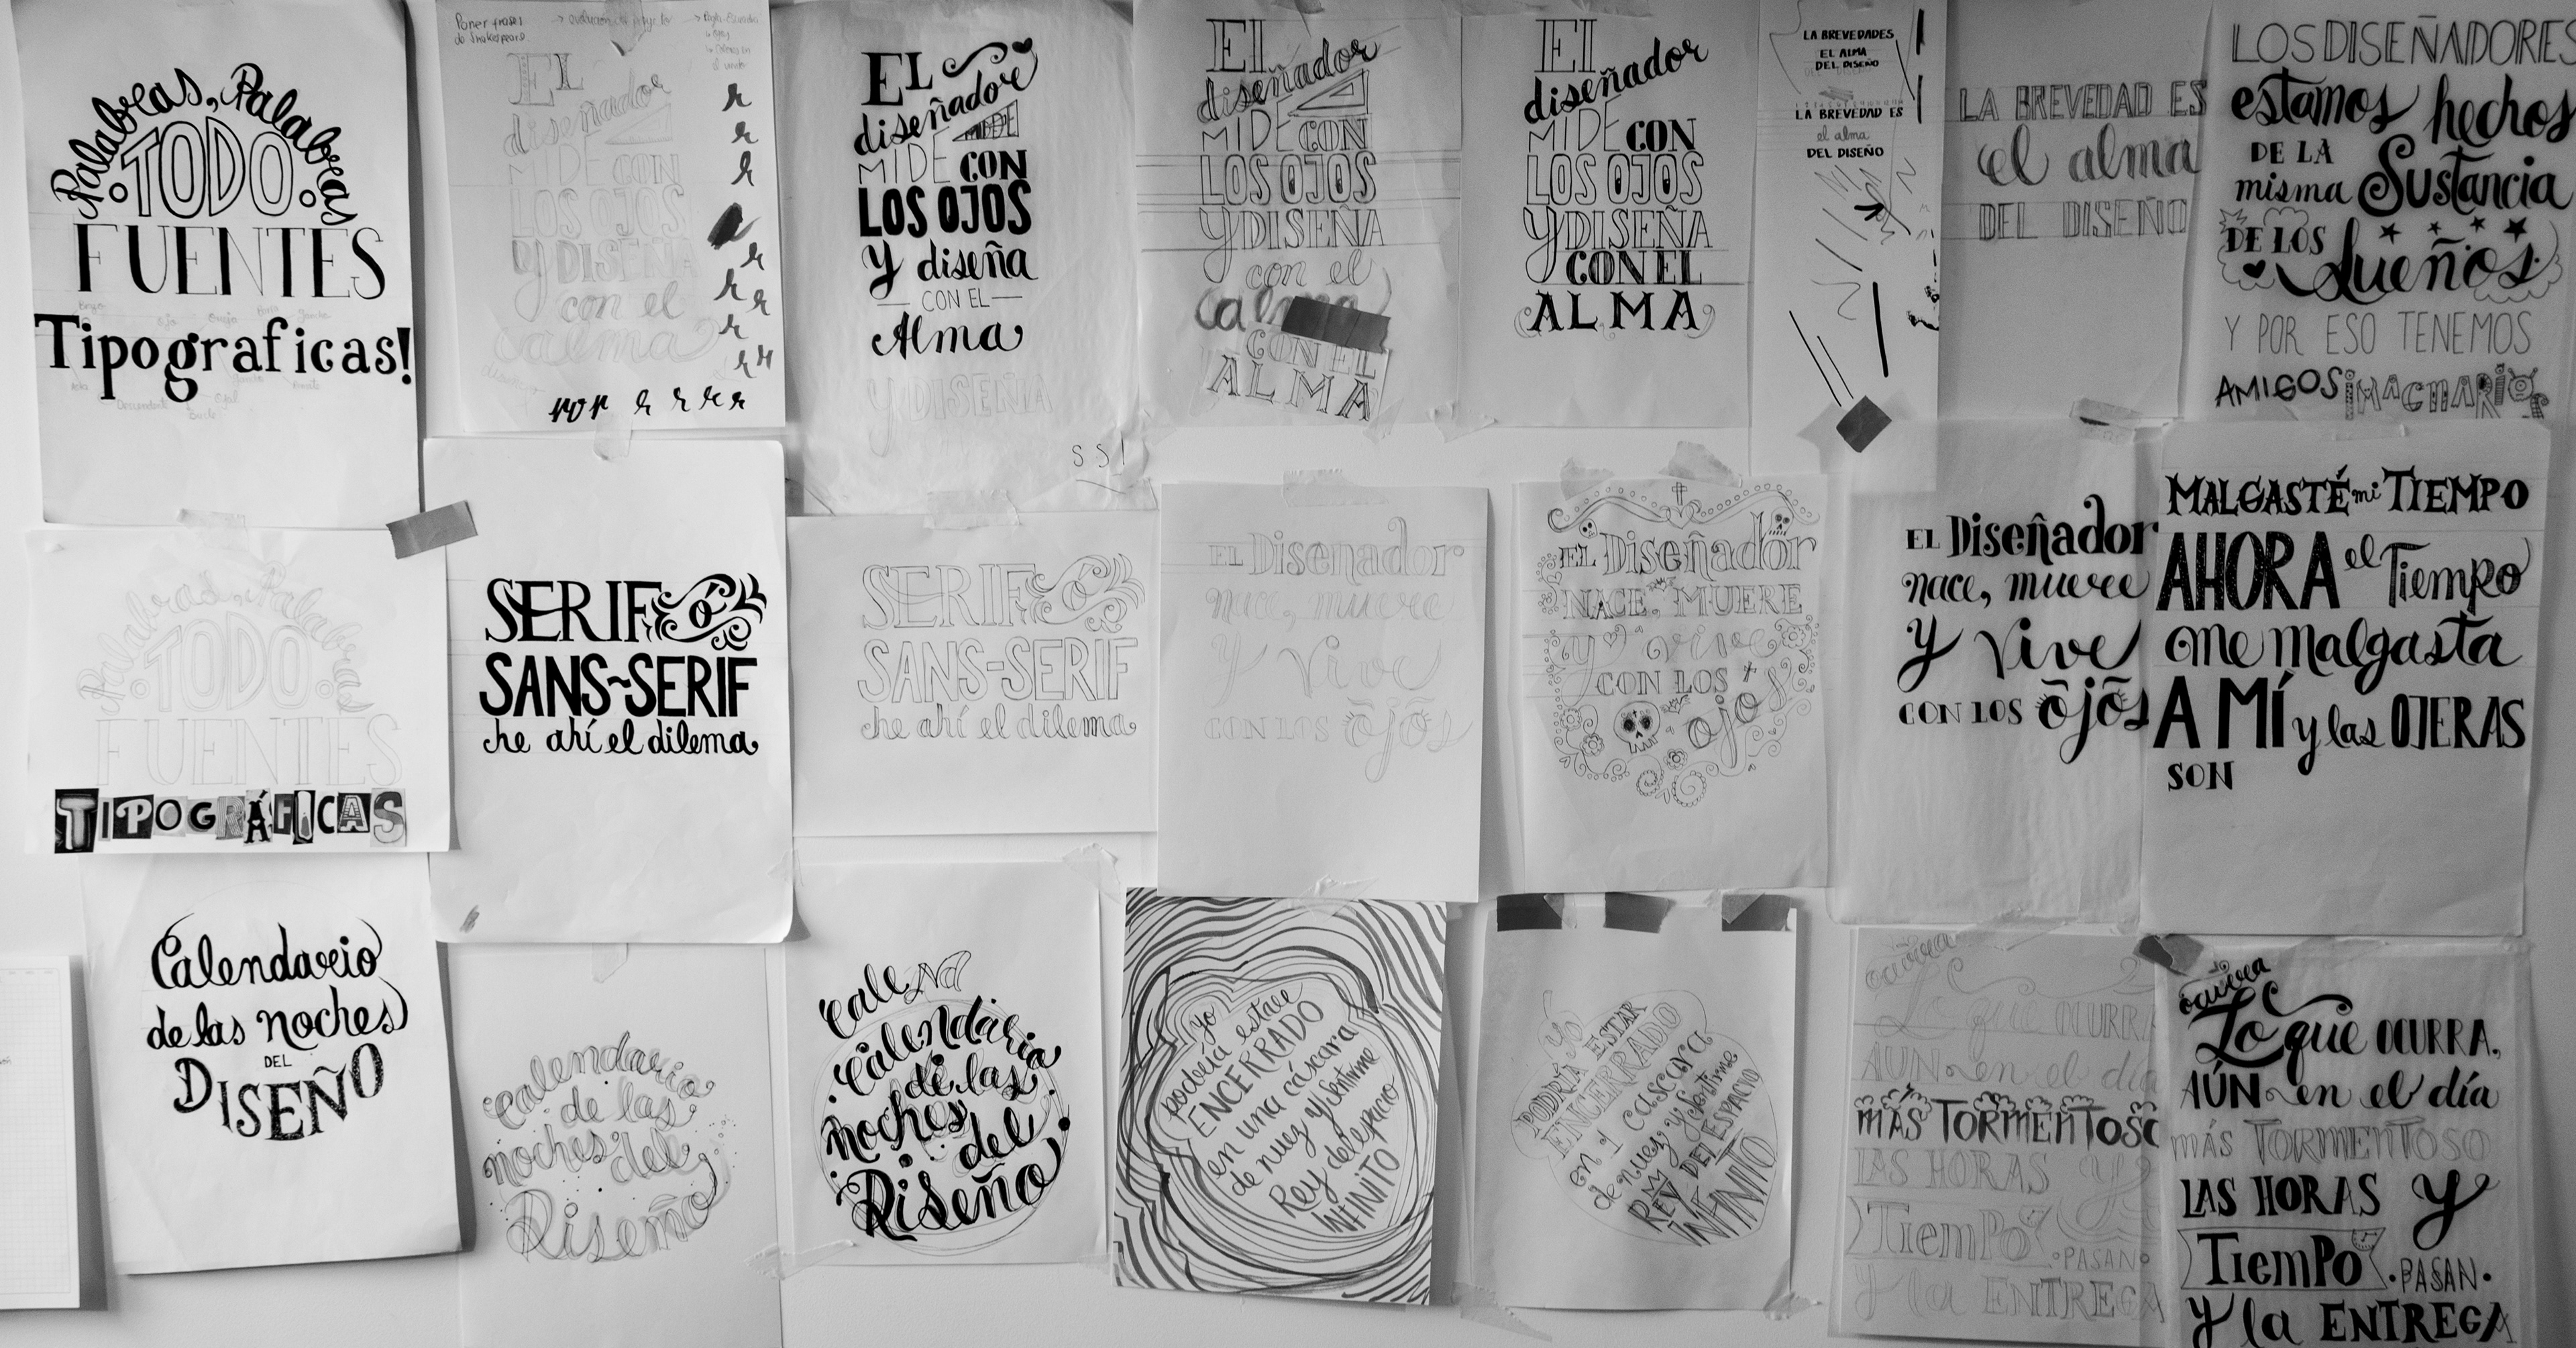 Palabras, Palabras
TODO
FUENTES
Tipograficas!
Poner frases
de Shakespeare
EL
diseñador
MIDE CON
LOS OJOS
Y DISEÑA
con el
alma
EL
diseñador
MIDE CON
LOS OJOS
y diseña
CON EL
Alma
Y DISEÑA
EL
diseñador
MIDE CON
LOS OJOS
Y DISEÑA
con el
CON EL
ALMA
EL
diseñador
MIDE CON
LOS OJOS
Y DISEÑA
CON EL
ALMA
LA BREVEDADES
EL ALMA
DEL DISEÑO
LA BREVEDAD ES
el alma
DEL DISEÑO
LA BREVEDAD ES
el alma
DEL DISEÑO
LOS DISEÑADORES
estamos hechos
DE LA
misma Sustancia
DE LOS
Sueños
Y POR ESO TENEMOS
AMIGOS iMAGiNARiOS
Palabras, Palabras
TODO
FUENTES
TIPOGRÁFICAS
SERIF ó
SANS-SERIF
he ahí el dilema
SERIF ó
SANS-SERIF
he ahí el dilema
EL Disenador
nace, muere
y vive
CON LOS ojos
EL Diseñador
NACE, MUERE
y vive
CON LOS
ojos
EL Diseñador
nace, muere
y vive
CON LOS ojos
MALGASTÉ mi TIEMPO
AHORA el Tiempo
me malgasta
A MÍ y las OJERAS
SON
Calendario
de las noches
DEL
DISEÑO
Calendario
de las
noches del
Diseño
Cale Nd
Calendario
de las
noches
del
Diseño
yo
podría estar
ENCERRADO
en una cáscara
de nuez y sentirme
Rey del espacio
INFINITO
Yo
PODRÍA ESTAR
ENCERRADIO
en 1 CASCARA
de nuez y sentirme
REY DEL ESPACIO
INFINITO
ocurra
Lo que OCURRA
AÚN en el día
MÁS TORMENTOSO
LAS HORAS y
TiemPo
PASAN
y la ENTREGA
ocurra
Lo que OCURRA,
AÚN en el día
MÁS TORMENTOSO
LAS HORAS y
TiemPo
PASAN
y la ENTREGA